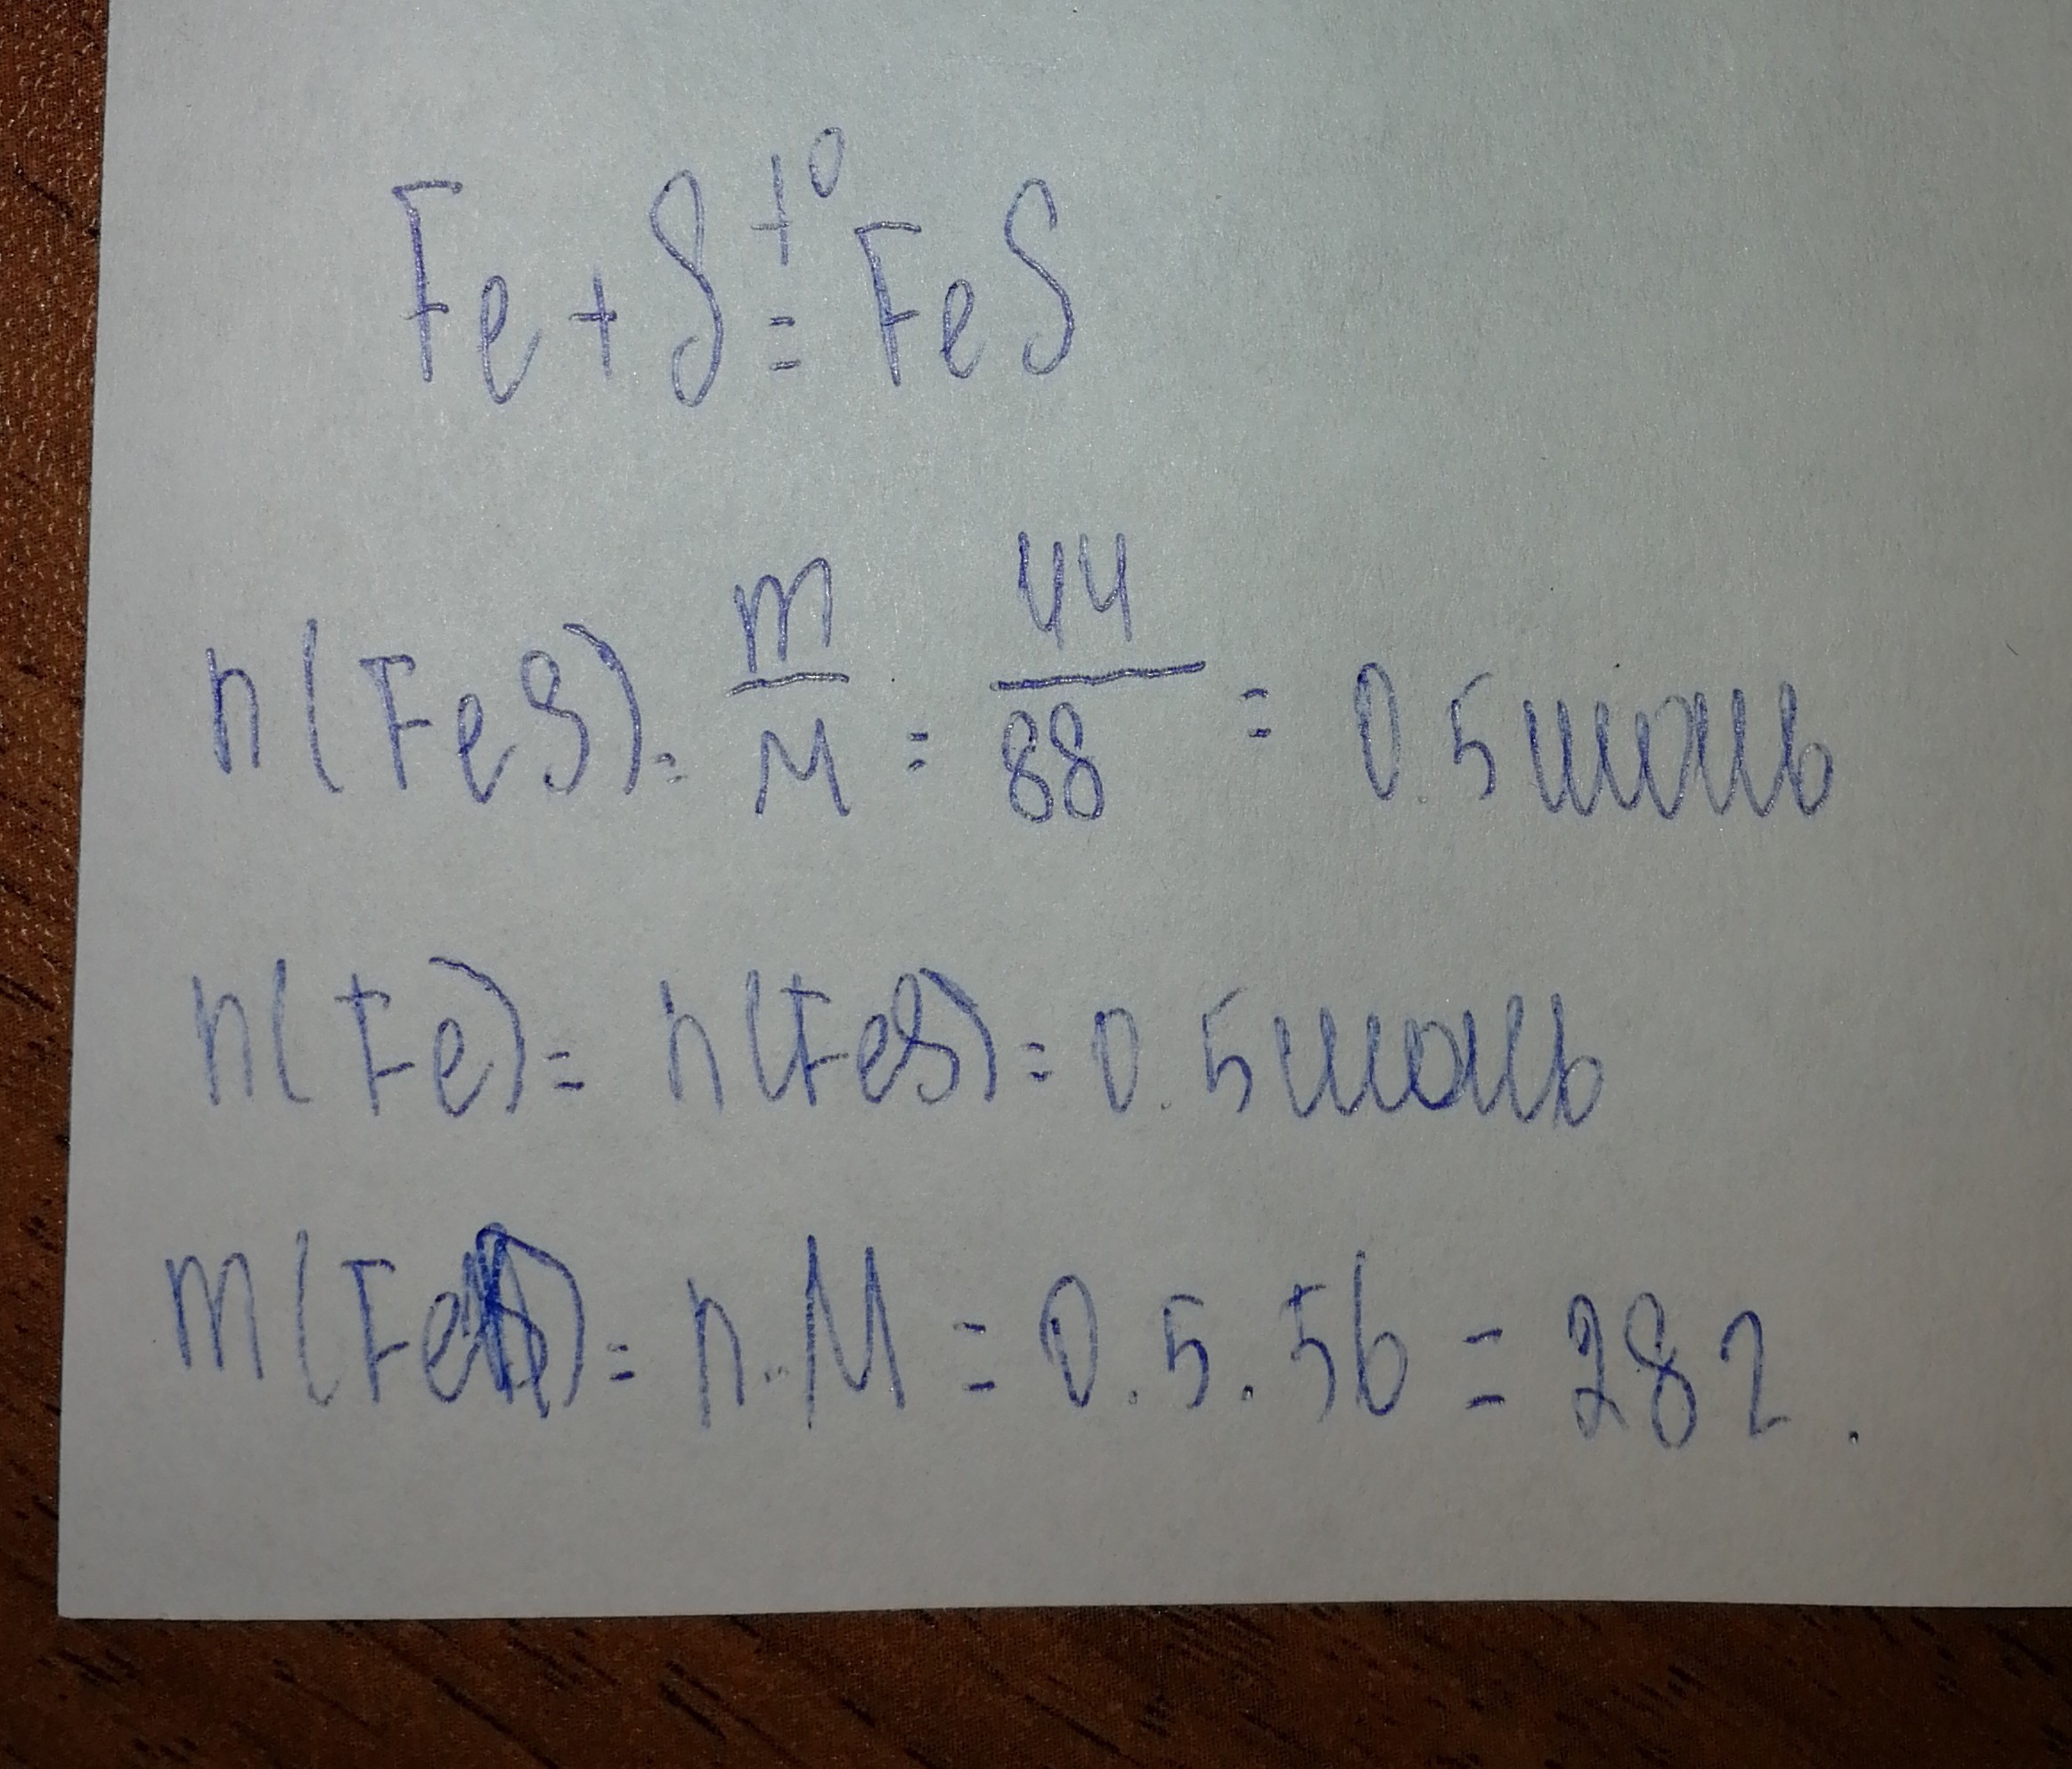 Fe + S =t⁰ FeS
n(FeS) = m/M = 44/88 = 0.5 моль
n(Fe) = n(FeS) = 0.5 моль
m(Fe) = n·M = 0.5·56 = 28 г.